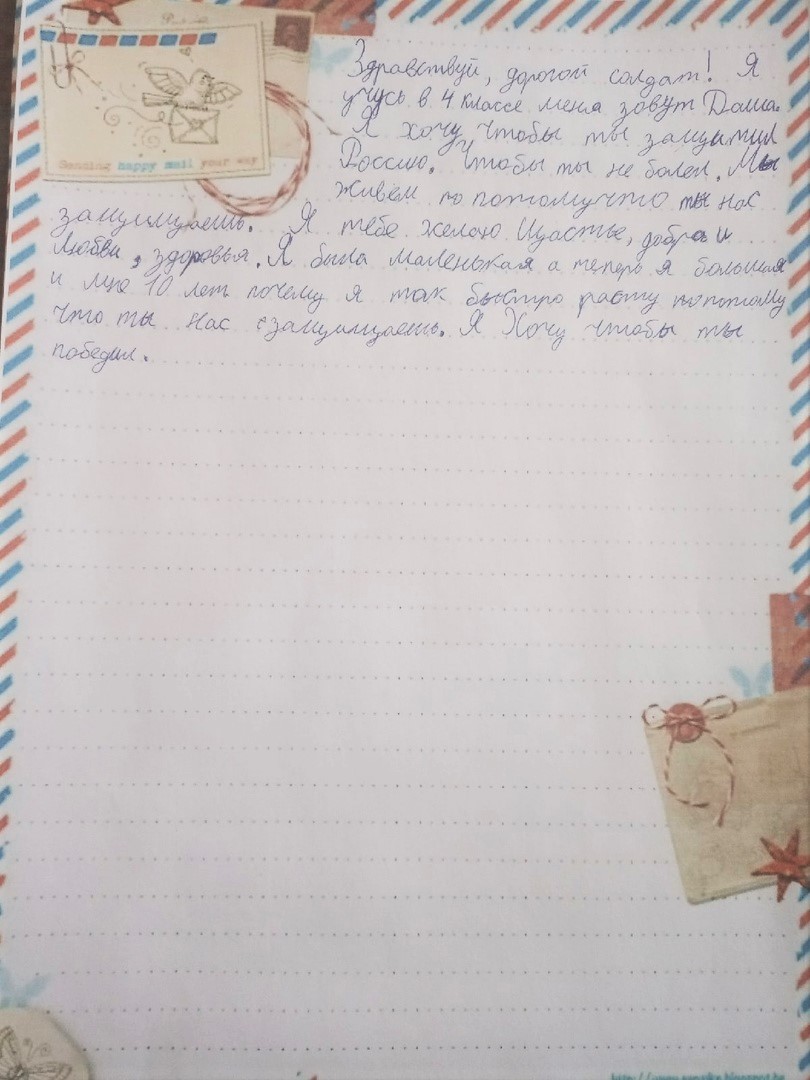 Sending happy mail your way
Здравствуй, дорогой солдат! Я
учусь в 4 классе меня зовут Даша.
Я хочу чтобы ты защитил
Россию. Чтобы ты не болел. Мы
живем по потомучто ты нас
защищаешь. Я тебе желаю щастье, добра и
любви, здоровья. Я была маленькая а теперь я большая
и мне 10 лет почему я так быстро расту попотому
что ты нас защищаешь. Я Хочу чтобы ты
победил.